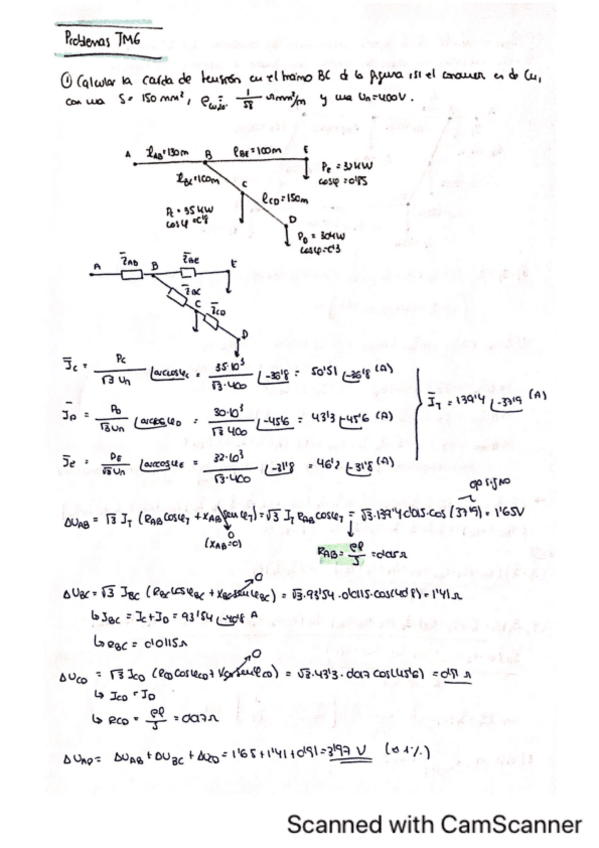 Problemas TM6
① Calcular la caída de tensión en el tramo BC de la figura si el conductor es de Cu,
con una S= 150 mm², ρ = 1/58 Ωmm²/m y una Un=400V.
A l_AB=130m B l_BE=100m E
P_E = 32kW
cosφ=0'85
l_BC=100m
C l_CD=150m
P_C = 35kW
cosφ=0'8
D
P_D = 30kW
A Z̄_AB B Z̄_BE E
Z̄_BC
C Z̄_CD
D
J̄_C = P_C/(√3 Un) |arccosφ_C = 35·10³/(√3·400) |-36'8 = 50'51 |-36'8 (A)
J̄_D = P_D/(√3 Un) |arccosφ_D = 30·10³/(√3·400) |-45'6 = 43'3 |-45'6 (A)
J̄_E = P_E/(√3 Un) |arccosφ_E = 32·10³/(√3·400) |-31'8 = 46'2 |-31'8 (A)
J̄_T = 139'4 |-37'9 (A)
op signo
ΔU_AB = √3 J_T (R_AB cosφ_T + X_AB senφ_T) = √3 J_T R_AB cosφ_T = √3·139'4·0'015·cos(37'9) = 1'65V
0
(X_AB=0)
R_AB = ρl/S = 0'015Ω
0
ΔU_BC = √3 J_BC (R_BC cosφ_BC + X_BC senφ_BC) = √3·93'54·0'0115·cos(40'8) = 1'41 Ω
↳ J_BC = J_C+J_D = 93'54 |-40'8 A
↳ R_BC = 0'0115Ω
0
ΔU_CD = √3 J_CD (R_CD cosφ_CD + X_CD senφ_CD) = √3·43'3·0'017 cos(45'6) = 0'91 Ω
↳ J_CD = J_D
↳ R_CD = ρl/S = 0'017Ω
ΔU_AD = ΔU_AB + ΔU_BC + ΔU_CD = 1'65+1'41+0'91 = 3'97 V
Scanned with CamScanner